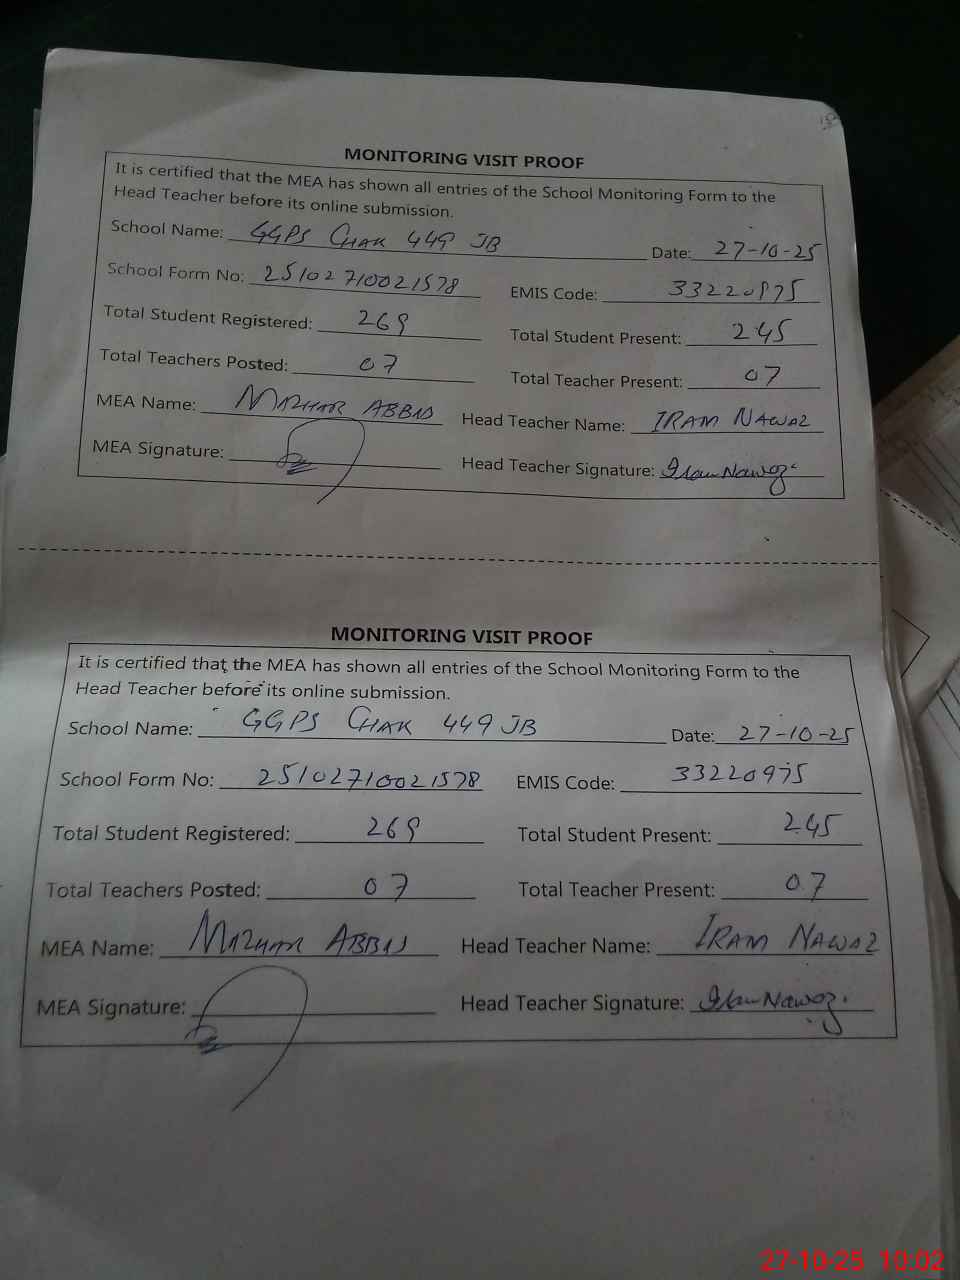 MONITORING VISIT PROOF
It is certified that the MEA has shown all entries of the School Monitoring Form to the
Head Teacher before its online submission.
School Name: GGPS CHAK 449 JB Date: 27-10-25
School Form No: 25102710021578 EMIS Code: 33220975
Total Student Registered: 269 Total Student Present: 245
Total Teachers Posted: 07 Total Teacher Present: 07
MEA Name: MAZHAR ABBAS Head Teacher Name: IRAM NAWAZ
MEA Signature: Head Teacher Signature: Iram Nawaz
MONITORING VISIT PROOF
It is certified that the MEA has shown all entries of the School Monitoring Form to the
Head Teacher before its online submission.
School Name: GGPS CHAK 449 JB Date: 27-10-25
School Form No: 25102710021578 EMIS Code: 33220975
Total Student Registered: 269 Total Student Present: 245
Total Teachers Posted: 07 Total Teacher Present: 07
MEA Name: MAZHAR ABBAS Head Teacher Name: IRAM NAWAZ
MEA Signature: Head Teacher Signature: Iram Nawaz
27-10-25 10:02